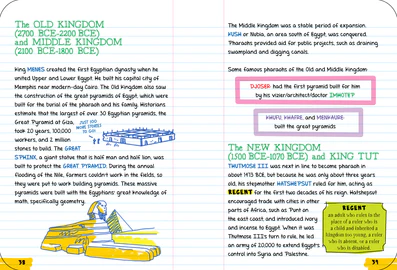 The OLD KINGDOM
(2700 BCE-2200 BCE)
and MIDDLE KINGDOM
(2100 BCE-1800 BCE)
King MENES created the first Egyptian dynasty when he
united Upper and Lower Egypt. He built his capital city of
Memphis near modern-day Cairo. The Old Kingdom also saw
the construction of the great pyramids of Egypt, which were
built for the burial of the pharaoh and his family. Historians
estimate that the largest of over 30 Egyptian pyramids, the
Great Pyramid at Giza,
took 20 years, 100,000
workers, and 2 million
stones to build. The GREAT
SPHINX, a giant statue that is half man and half lion, was
built to protect the GREAT PYRAMID. During the annual
flooding of the Nile, farmers couldn't work in the fields, so
they were put to work building pyramids. These massive
pyramids were built with the Egyptians' great knowledge of
math, specifically geometry.
JUST 200
MORE STONES
TO GO!
38
The Middle Kingdom was a stable period of expansion.
KUSH or Nubia, an area south of Egypt was conquered.
Pharaohs provided aid for public projects, such as draining
swampland and digging canals.
Some famous pharaohs of the Old and Middle Kingdom:
DJOSER: had the first pyramid built for him
by his vizier/architect/doctor IMHOTEP
KHUFU, KHAFRE, and MENKAURE:
built the great pyramids
The NEW KINGDOM
(1,500 BCE-1070 BCE) and KING TUT
THUTMOSE III was next in line to become pharaoh in
about 1473 BCE, but because he was only about three years
old, his stepmother HATSHEPSUT ruled for him, acting as
REGENT for the first two decades of his reign. Hatshepsut
encouraged trade with cities in other
parts of Africa, such as Punt on
the east coast and introduced ivory
and incense to Egypt. When it was
Thutmose III's turn to rule, he led
an army of 20,000 to extend Egypt's
control into Syria and Palestine.
REGENT
an adult who rules in the
place of a ruler who is
a child and inherited a
kingdom too young, a ruler
who is absent, or a ruler
who is disabled.
39